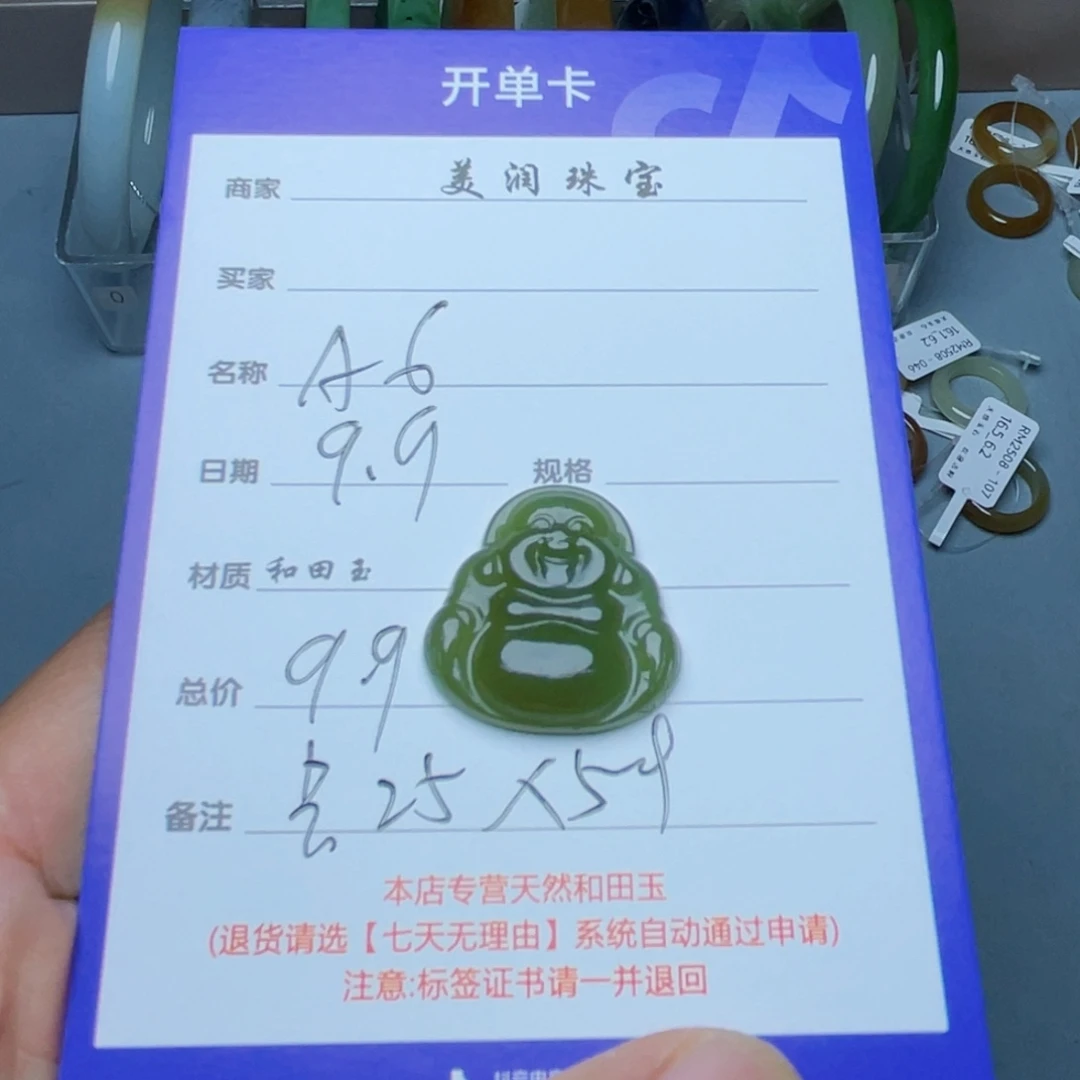 开单卡
商家 美润珠宝
买家
名称 A6
日期 9.9 规格
材质 和田玉
总价 99
备注 25X59
本店专营天然和田玉
(退货请选【七天无理由】系统自动通过申请)
注意:标签证书请一并退回
0
161_62
RM2508-046
165_62
RM2508-107